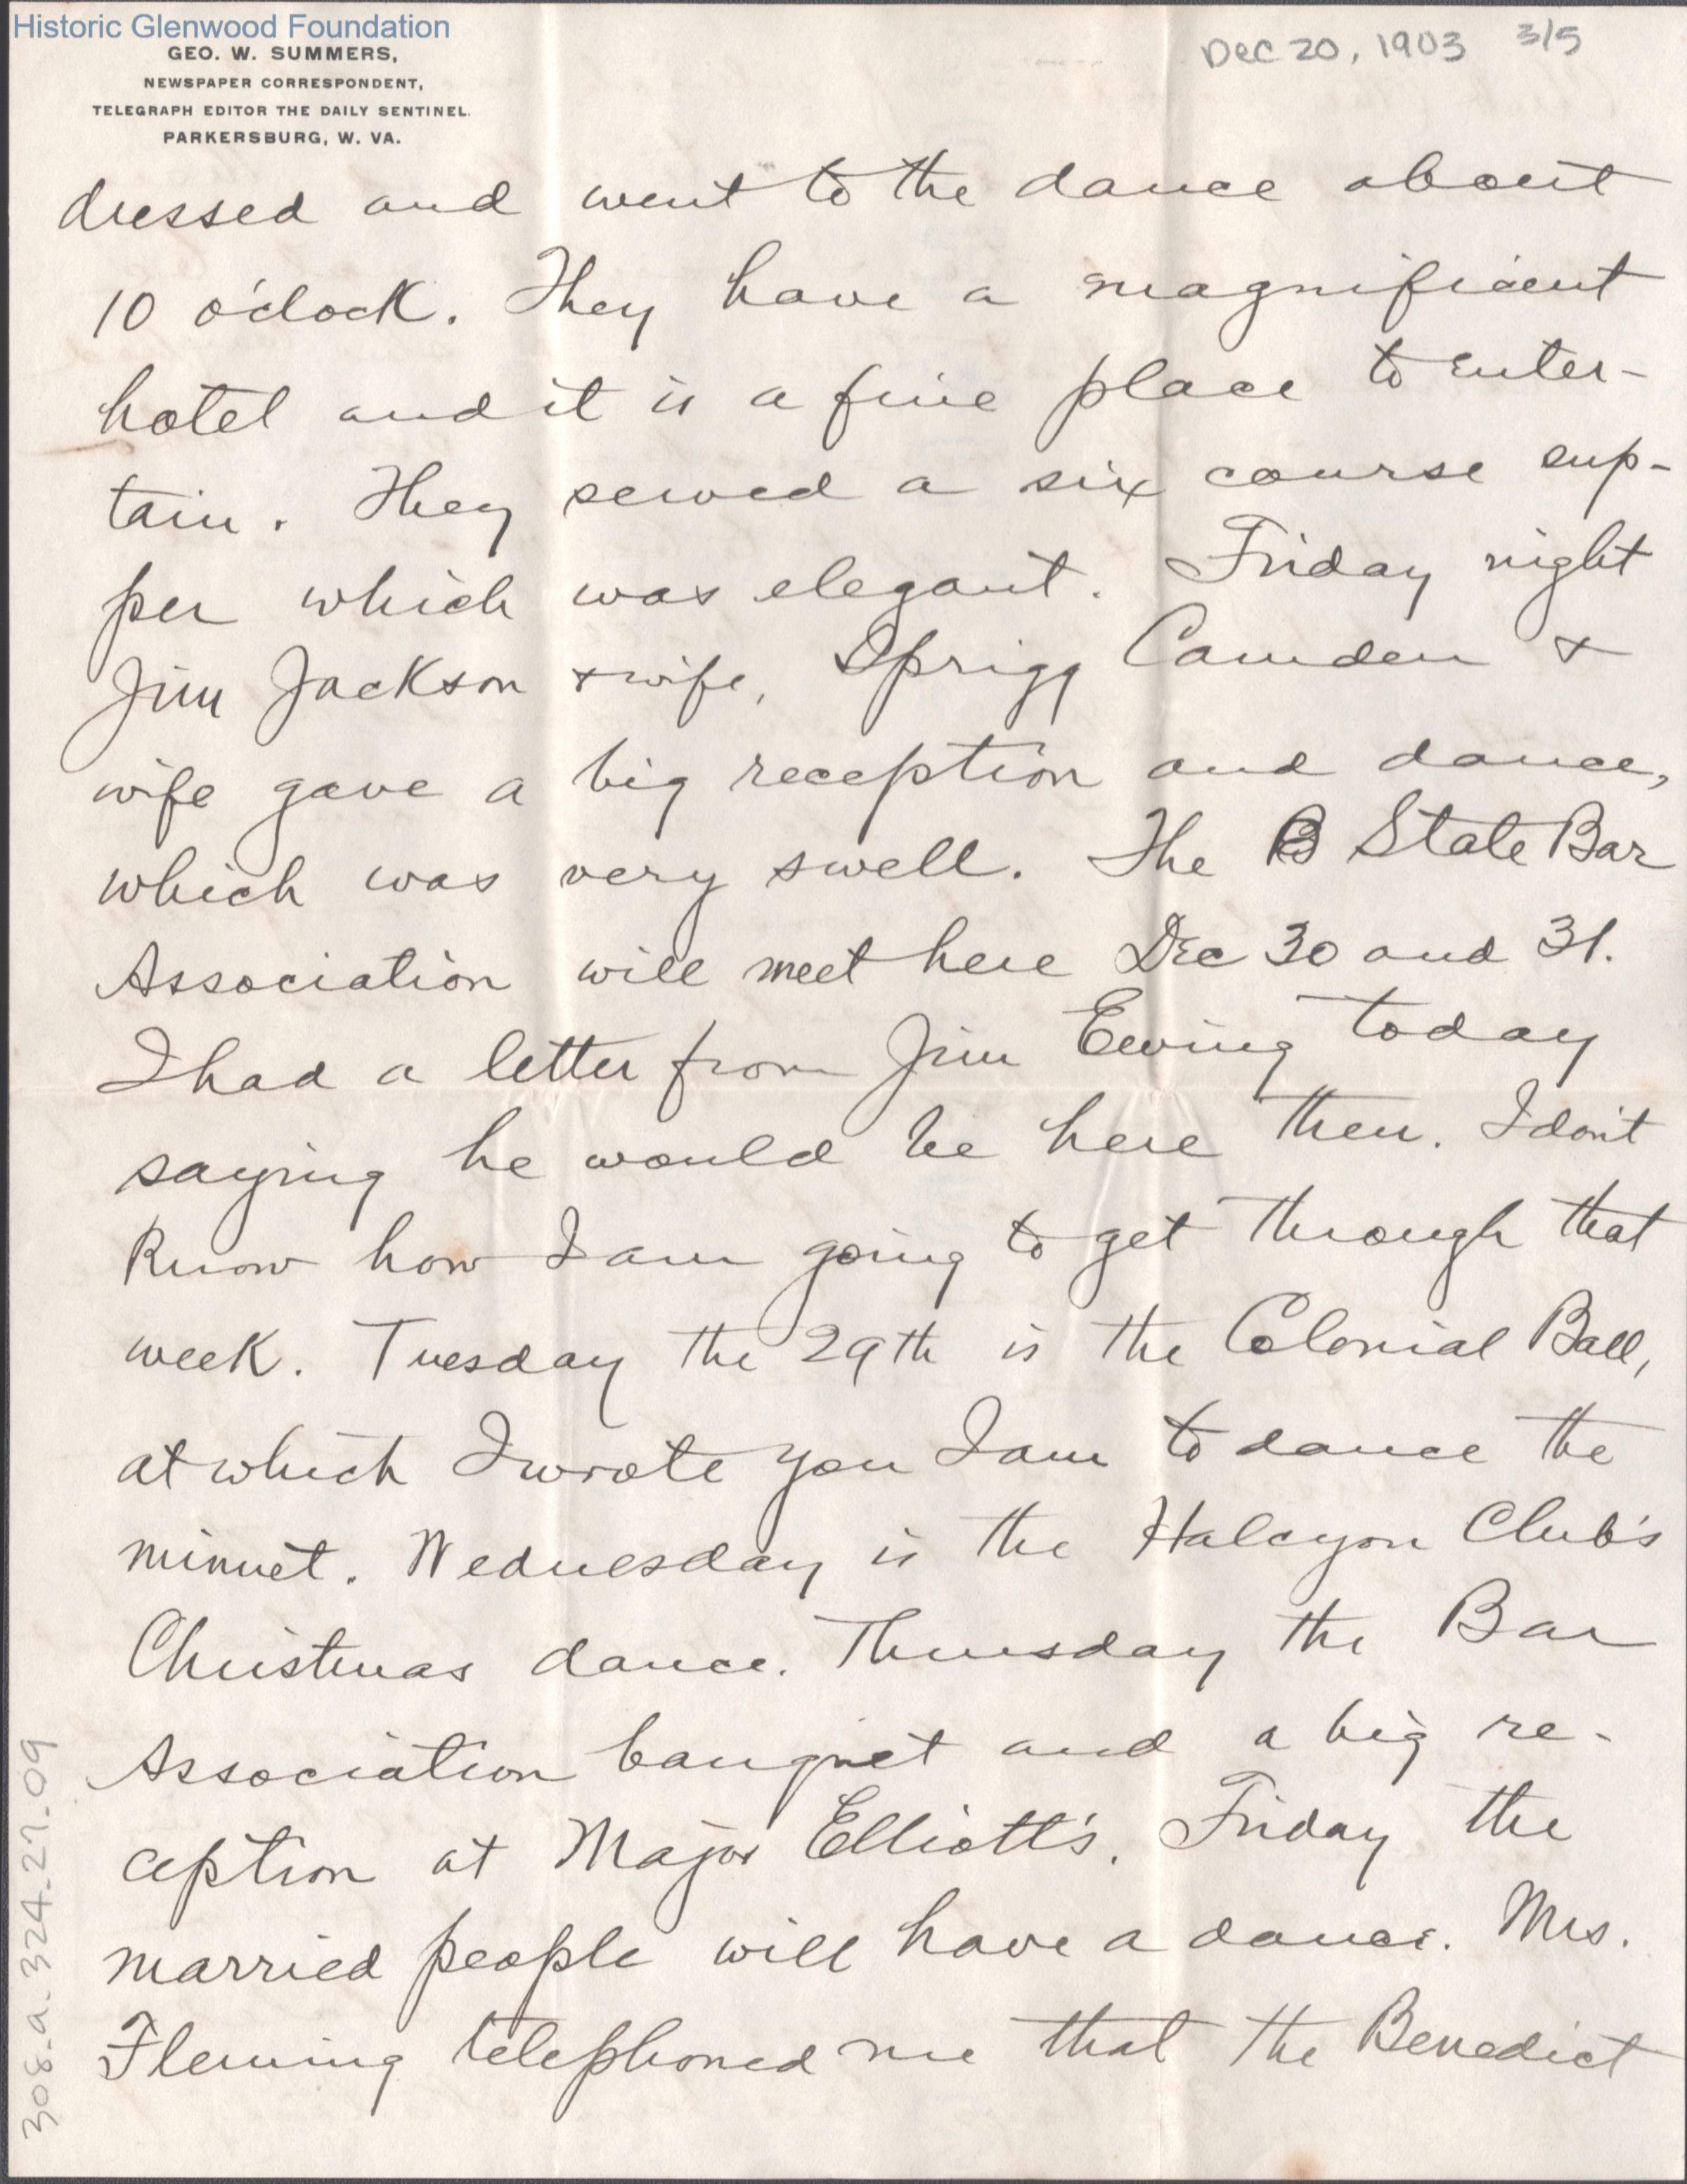 Historic Glenwood Foundation
Dec 20, 1903 3/5
GEO. W. SUMMERS,
NEWSPAPER CORRESPONDENT,
TELEGRAPH EDITOR THE DAILY SENTINEL.
PARKERSBURG, W. VA.
dressed and went to the dance about
10 o'clock. They have a magnificent
hotel and it is a fine place to enter-
tain. They served a six course sup-
per which was elegant. Friday night
Jim Jackson & wife, Sprigg Camden &
wife gave a big reception and dance,
which was very swell. The B State Bar
Association will meet here Dec 30 and 31.
I had a letter from Jim Ewing today
saying he would be here then. I don't
know how I am going to get through that
week. Tuesday the 29th is the Colonial Ball,
at which I wrote you I am to dance the
minuet. Wednesday is the Halcyon Club's
Christmas dance. Thursday the Bar
Association banquet and a big re-
ception at Major Elliott's. Friday the
married people will have a dance. Mrs.
Fleming telephoned me that the Benedict
308.a.324.27.09